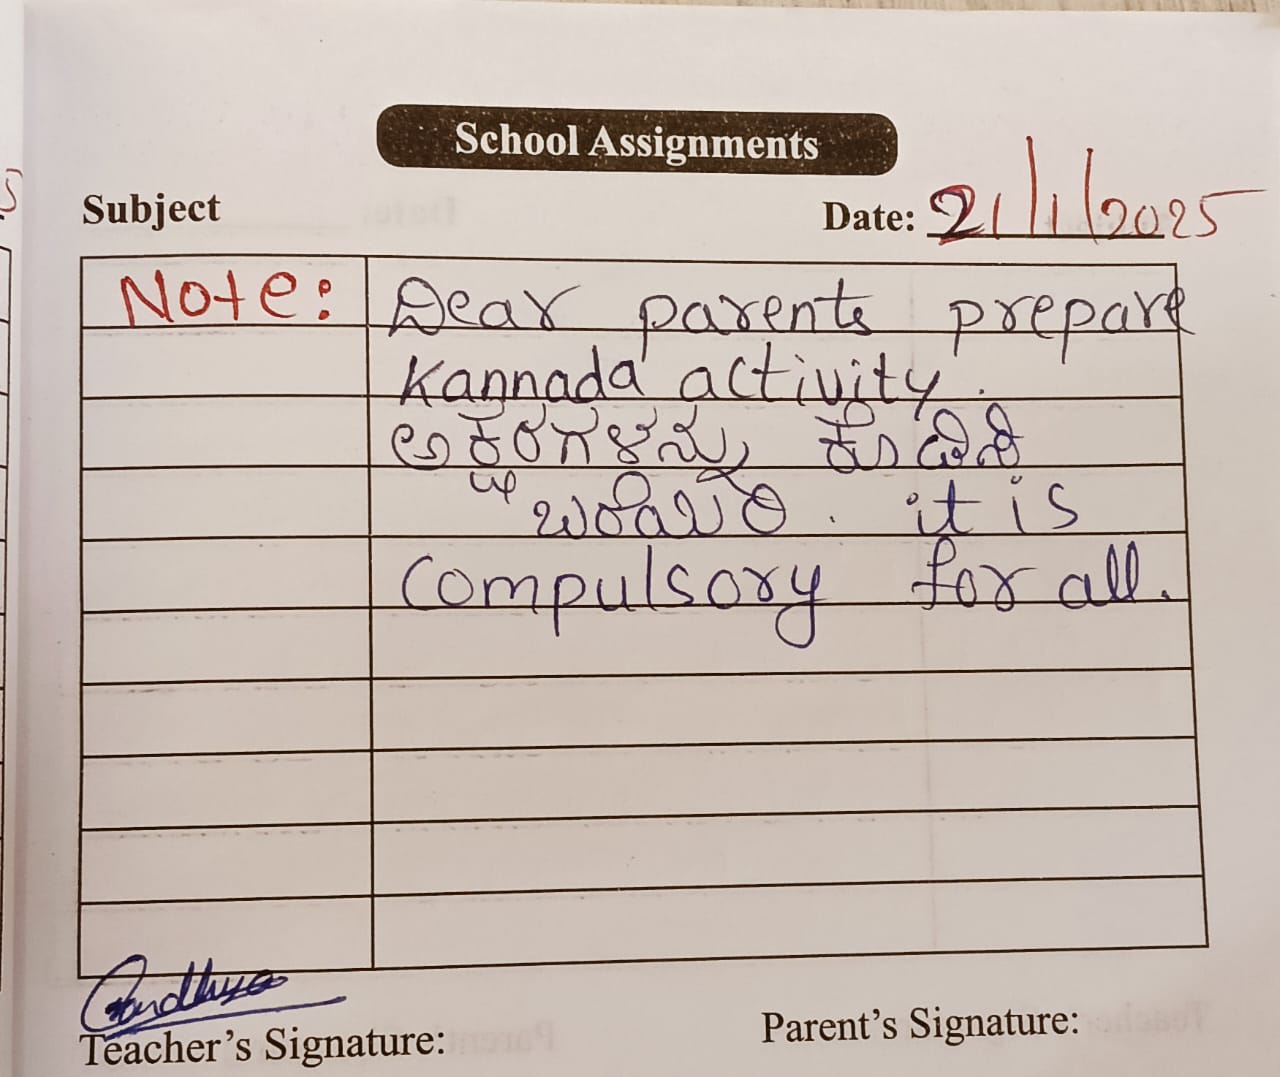 School Assignments
Subject Date: 21/1/2025
Note: Dear parents prepare
Kannada activity.
ಅಕ್ಷರಗಳನ್ನು ಕೂಡಿಸಿ
ಬರೆಯಿರಿ. it is
Compulsory for all.
Sandhya
Teacher's Signature: Parent's Signature: